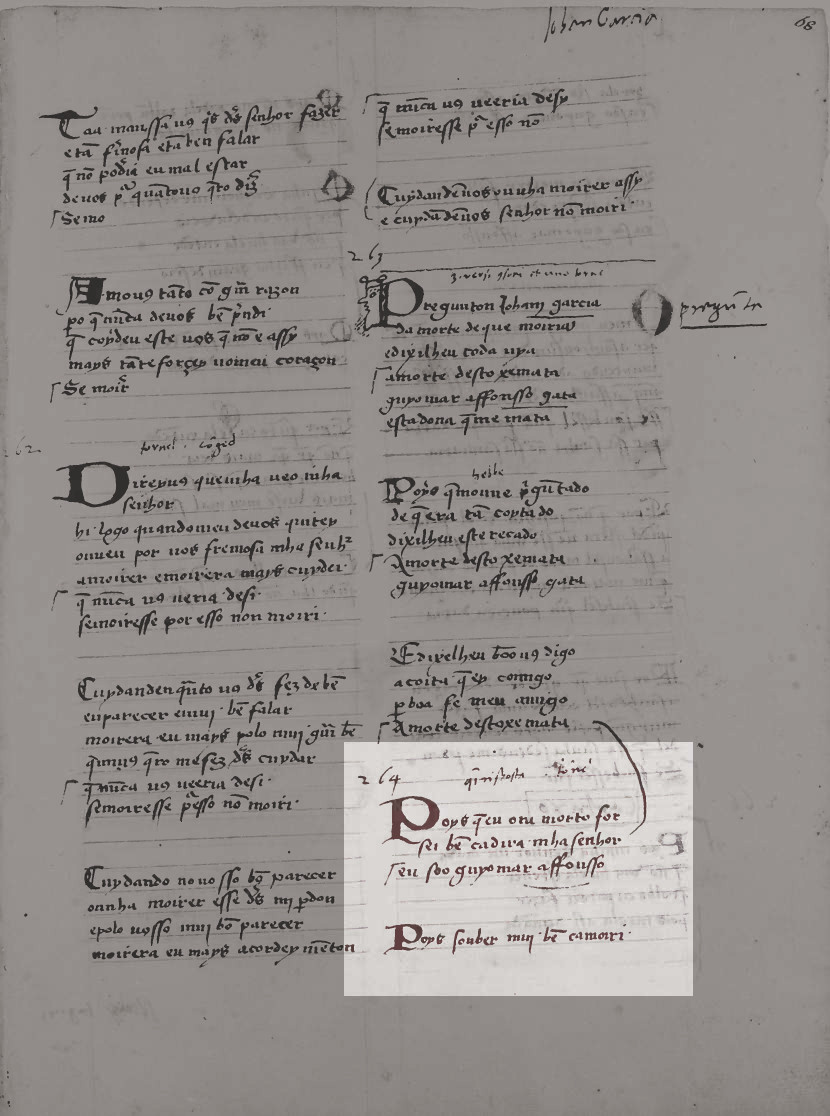 Johan Garcia
68
Taa manssa uꝯ q̄s ds̄ senhor fazer
e tā fr̄mosa e tā ben falar
q̄ nō podia eu mal estar
de uos
Se mo
A mouꝯ tāto cō gm̄ razon
po q̄ nūca de uos bē p̄ndi
q̄ coydeu este uos q̄ nō e assy
mays tāt e forçey no meu coraçon
Se moir̄
62
tornel
Direyuꝯ que mha ueo mha
senhor
hi logo quando meu de uos quitey
ouueu por uos fremosa mha senh̄
a moirer e moirera mays cuydei
q̄ nūca uꝯ ueria desi
se moiresse por esso non moiri
Cuydand en q̄nto uꝯ ds̄ fez de bē
en parecer e mui bē falar
moirera eu mays polo mui gm̄ bē
q̄ muꝯ q̄ro me fez ds̄ cuydar
q̄ nūca uꝯ ueeria desi
se moiresse p̄ esso nō moiri
Cuydando no uosso bē parecer
ouuha moirer esse ds̄ mi ꝑdon
e polo uosso mui bō parecer
moirera eu mays acordey m̄ enton
q̄ nūca uꝯ ueeria desy
se moiresse p̄ esso nō
Cuydand en uos ouuha moirer assy
e cuydād en uos senhor nō moiri
263
Preguntou Joham garcia
da morte de que moiria
e dixilheu toda uya
a morte desto xe mata
guyomar affonsso gata
est a dona q̄ me mata
pregūta
Poys q̄ mouue p̄gūtado
de q̄ era tā coytado
dixilheu este recado
A morte desto xe mata
guyomar affonsso gata
E dixelheu bōo uꝯ digo
a coita q̄ ey comigo
ꝑ boa fe meu amigo
A morte desto xe mata
264
Poys q̄ eu ora morto for
sei bē ca dira mha senhor
eu soo guyomar affonsso
Poys souber mui bē ca moiri